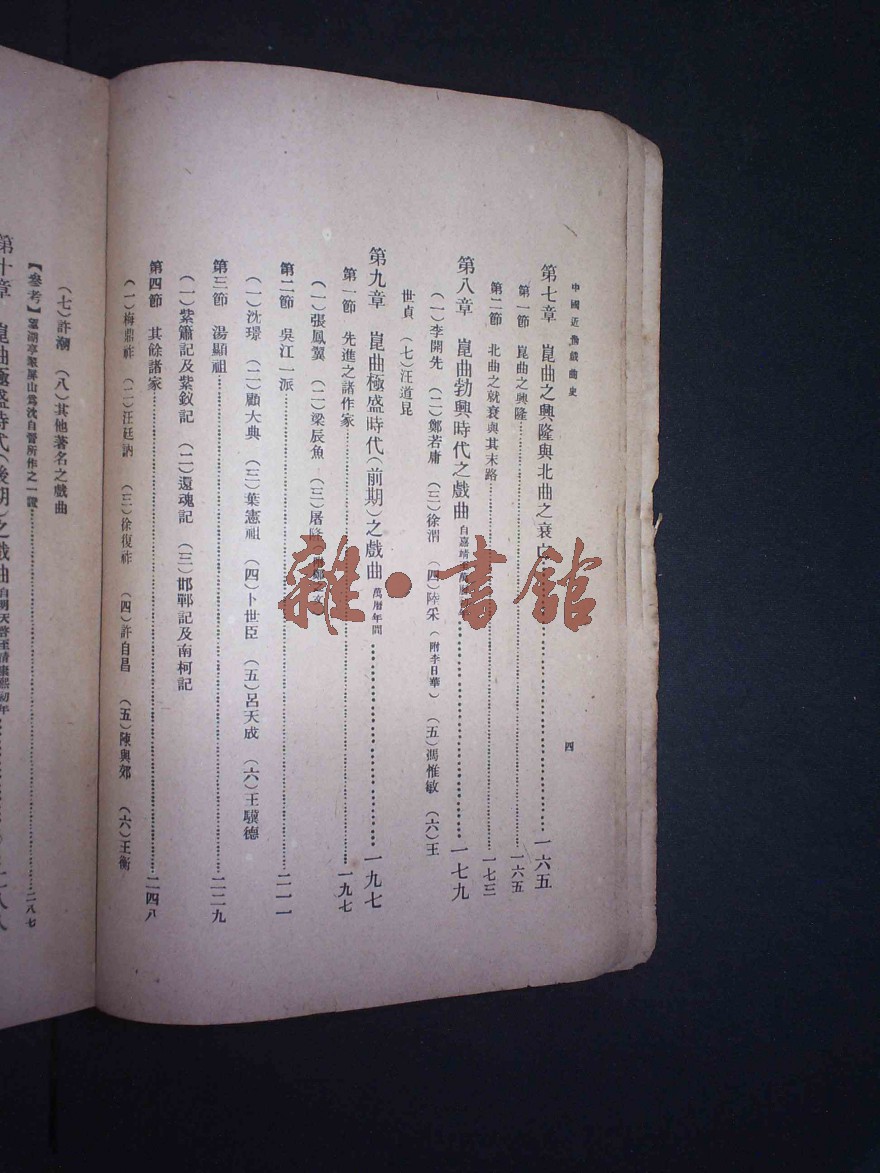 中國近世戲曲史
四
第七章　崑曲之興隆與北曲之衰亡……一六五
第一節　崑曲之興隆……一六五
第二節　北曲之就衰與其末路……一七三
第八章　崑曲勃興時代之戲曲 自嘉靖　萬曆……一七九
(一)李開先　(二)鄭若庸　(三)徐渭　(四)陸采(附李日華)　(五)馮惟敏　(六)王
世貞　(七)汪道昆
第九章　崑曲極盛時代(前期)之戲曲 萬曆年間……一九七
第一節　先進之諸作家……一九七
(一)張鳳翼　(二)梁辰魚　(三)屠隆
第二節　吳江一派……二一一
(一)沈璟　(二)顧大典　(三)葉憲祖　(四)卜世臣　(五)呂天成　(六)王驥德
第三節　湯顯祖……二二九
(一)紫簫記及紫釵記　(二)還魂記　(三)邯鄲記及南柯記
第四節　其餘諸家……二四八
(一)梅鼎祚　(二)汪廷訥　(三)徐復祚　(四)許自昌　(五)陳與郊　(六)王衡
(七)許潮　(八)其他著名之戲曲
【參考】望湖亭翠屏山爲沈自晉所作之一證……二八七
第十章　崑曲極盛時代(後期)之戲曲 自明天啓至清康熙初年……二八八
雜·書館